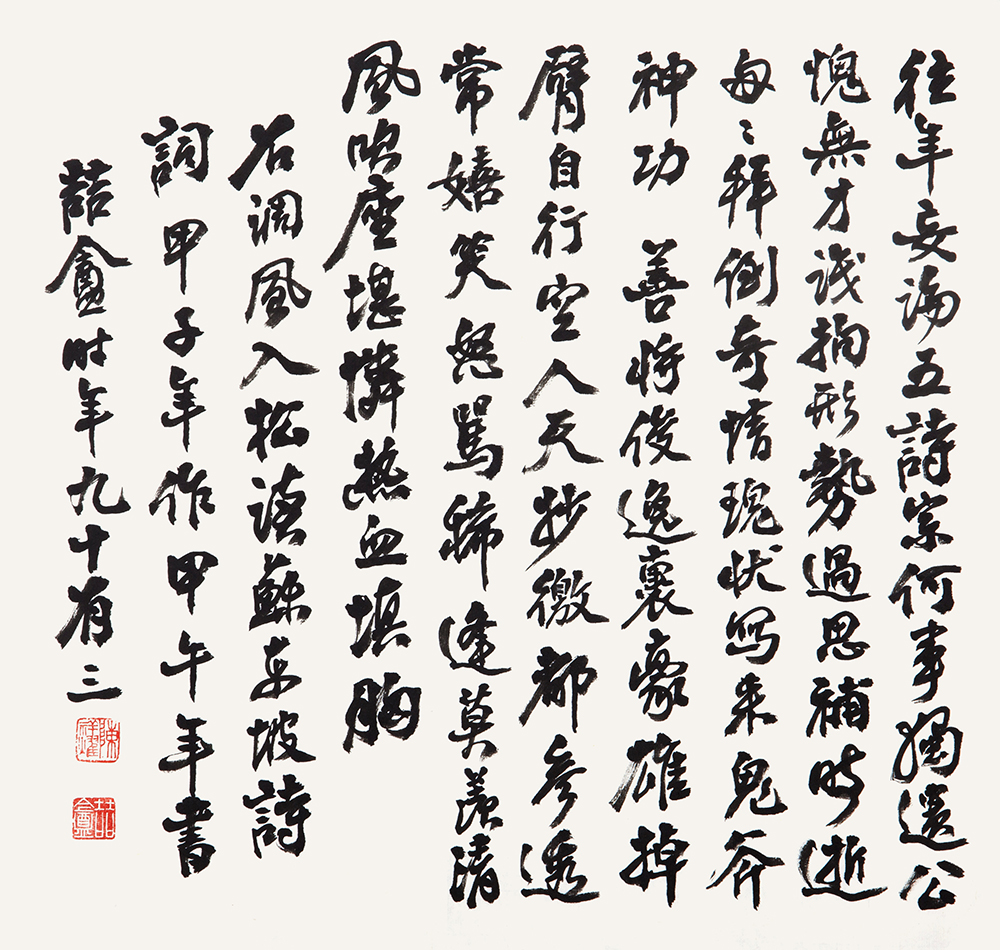 往年妄論五詩宗何事獨遺公
愧無才識拘形勢過思補时逝
匆〻拜倒奇情瑰状写来鬼斧
神功　善將俊逸裹豪雄掉
臂自行空人天妙徼都參透
常嬉笑怒罵稀逢莫羨清
風吹座堪憐熱血填胸
右調風入松讀蘇東坡詩
詞 甲子年作甲午年書
喆盦时年九十有三
陳祥耀
喆盦